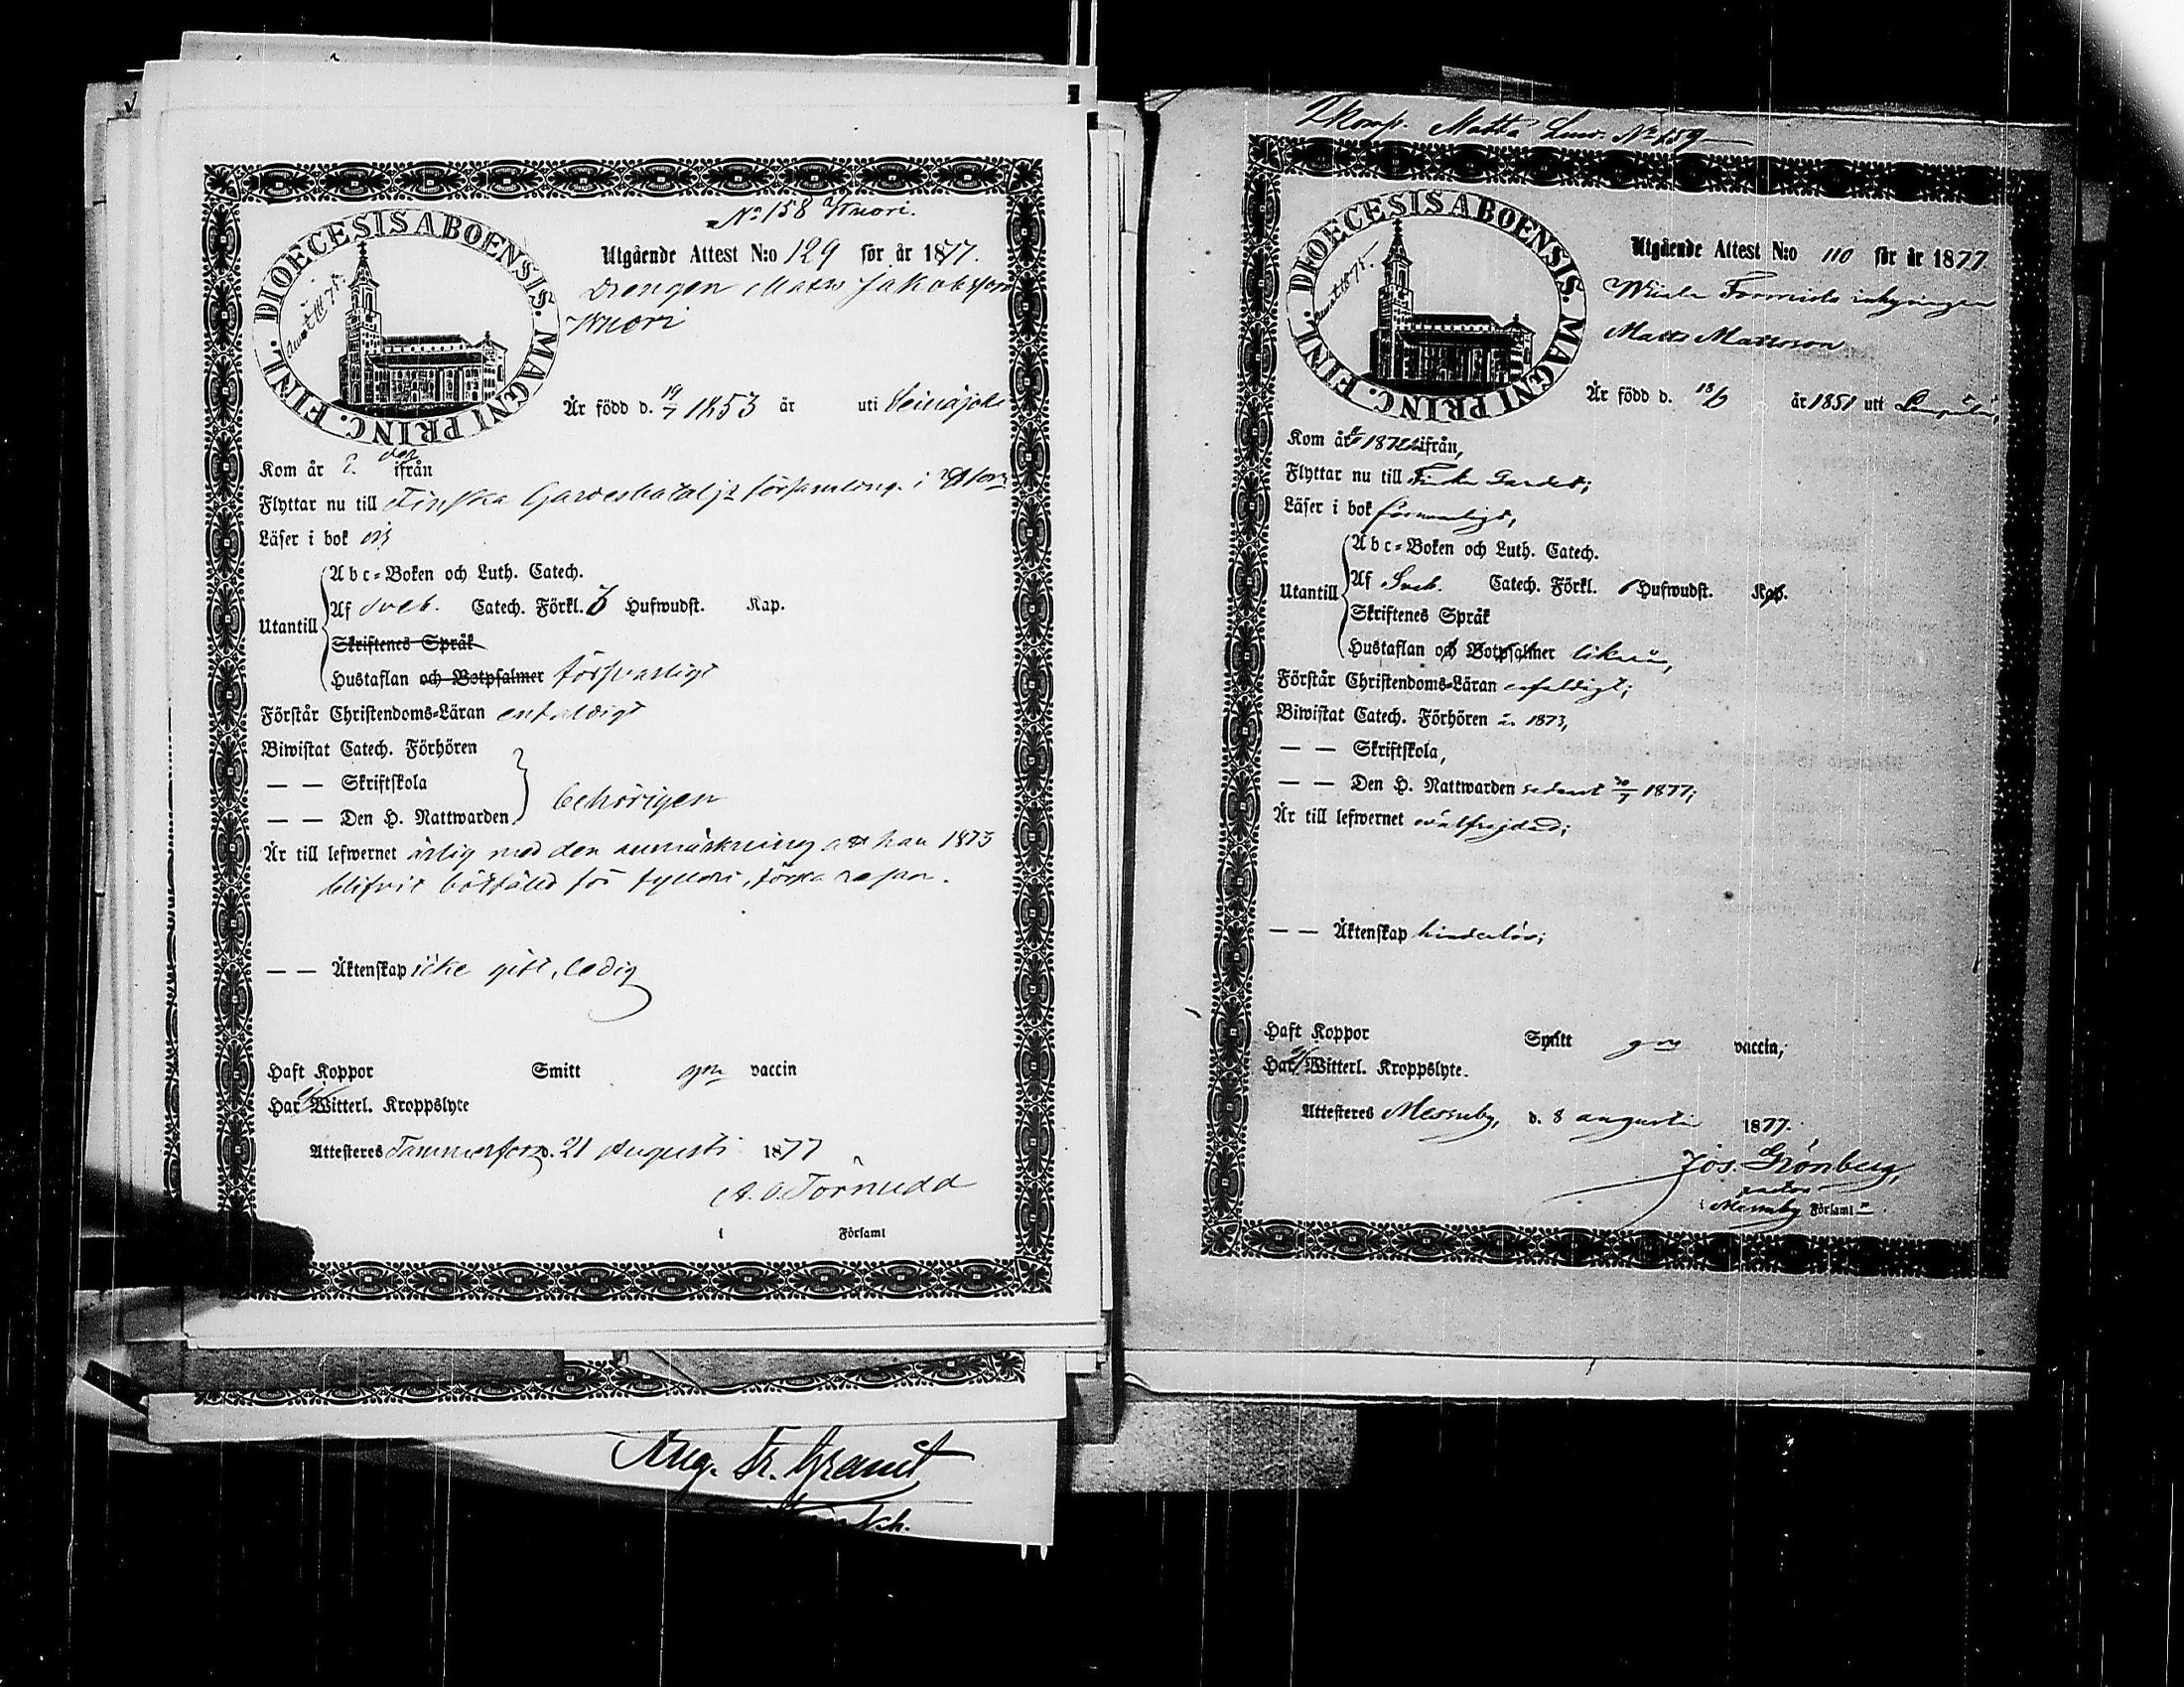 No 158 Knori.
DIOECESIS ABOENSIS. MAGNI PRINC. FINL.
Utgående Attest N:o 129 för år 1877.
Drengen Matts Jakobsson
Knori
Är född d. 19/7 1853 år uti Seinäjoki
Kom år ifrån
Flyttar nu till Finska Gardesbataljs församling i
Läser i bok
Utantill
Abc-Boken och Luth. Catech.
Af Sveb. Catech. Förkl. 3 Hufwudst. Kap.
Skriftenes Språk
Hustaflan och Botpsalmer försvarligt
Förstår Christendoms-Läran enfaldigt
Biwistat Catech. Förhören
— — Skriftskola
— — Den H. Nattwarden
behörigen
Är till lefwernet ärlig med den anmärkning att han 1873
blifvit bötfälld för fylleri, första resan.
— — Äktenskap icke gift, ledig
Haft Koppor Smitt gm vaccin
Har ej Witterl. Kroppslyte
Attesteres Tammerfors d. 21 Augusti 1877
A. O. Törnudd
i Församl
Aug. Fr. Granit
Komp. Matts No 159
DIOECESIS ABOENSIS. MAGNI PRINC. FINL.
Utgående Attest N:o 110 för år 1877
inhysingen
Matts Mattsson
Är född d. 13/6 år 1851 utt
Kom år ifrån,
Flyttar nu till Finska Gardet;
Läser i bok försvarligt,
Utantill
Abc-Boken och Luth. Catech.
Af Sveb. Catech. Förkl. Hufwudst. Kap.
Skriftenes Språk
Hustaflan och Botpsalmer likaså,
Förstår Christendoms-Läran enfaldigt;
Biwistat Catech. Förhören 1873,
— — Skriftskola,
— — Den H. Nattwarden senast 1877;
Är till lefwernet wälfrejdad;
— — Äktenskap hinderlös;
Haft Koppor Smitt gm vaccin;
Har ej Witterl. Kroppslyte.
Attesteres Messuby, d. 8 augusti 1877.
Jos. Grönberg,
Messuby Församl